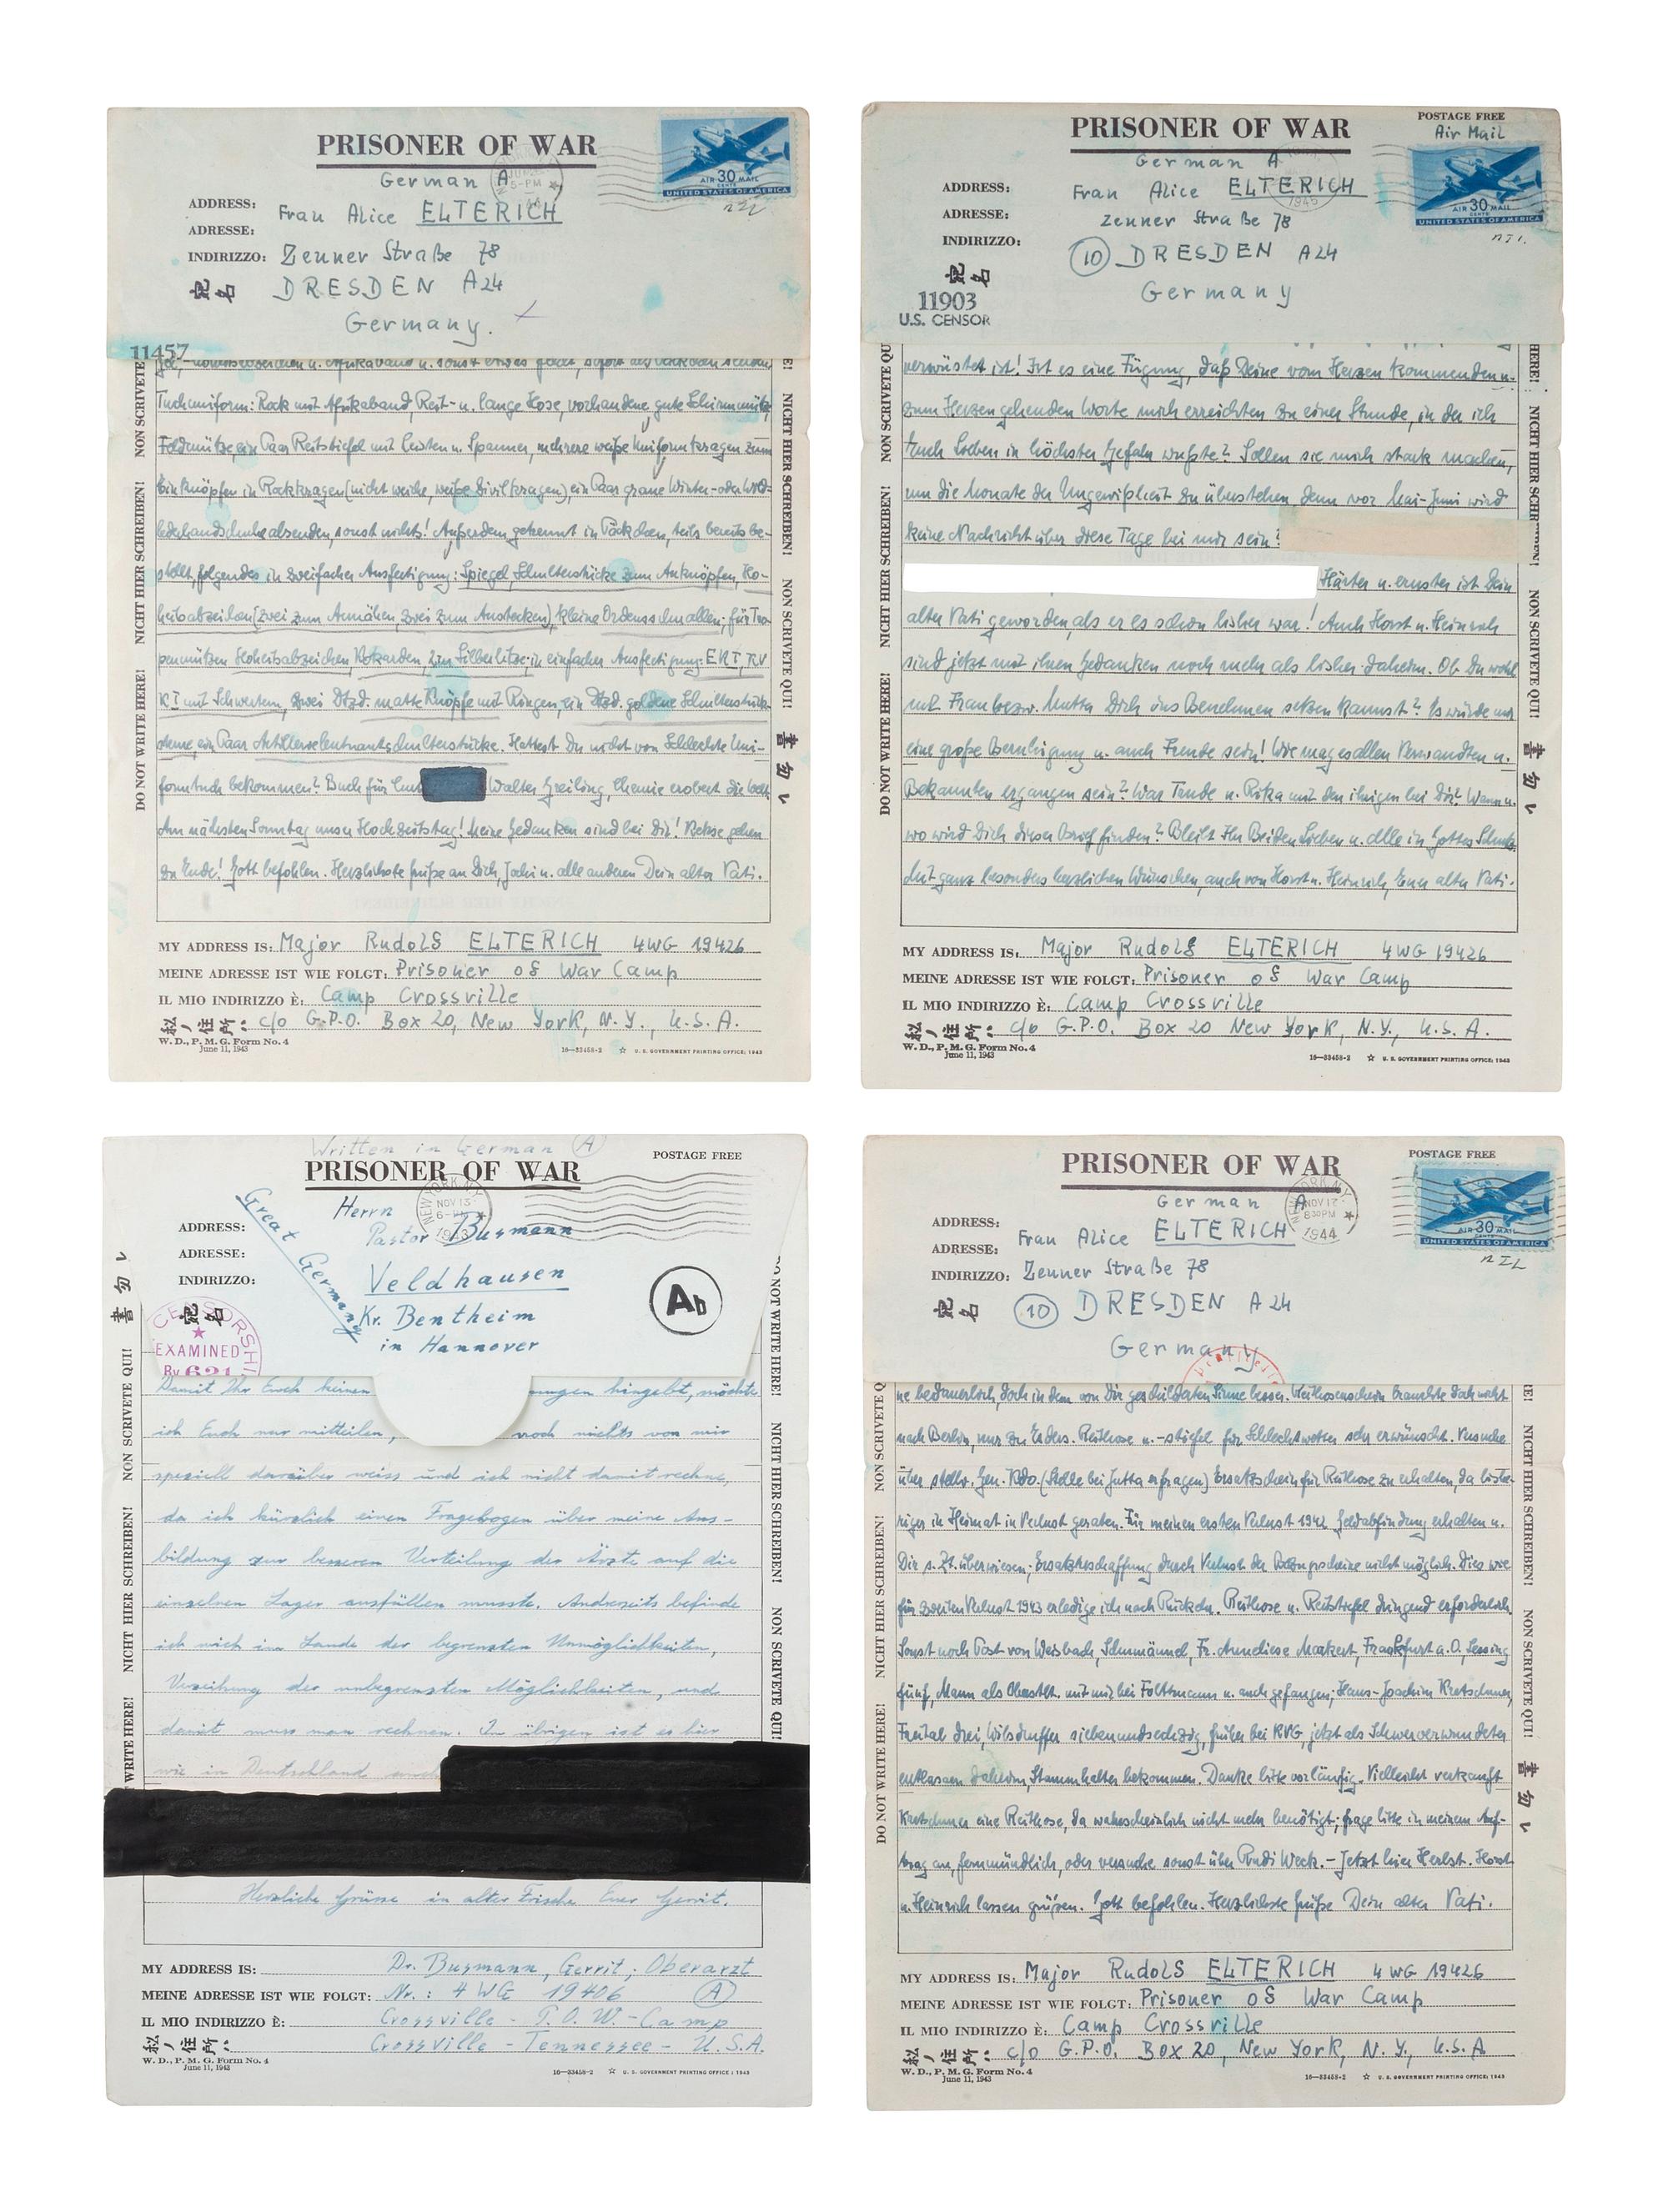 PRISONER OF WAR
German A
AIR 30 MAIL
CENTS
UNITED STATES OF AMERICA
ADDRESS:
ADRESSE:
INDIRIZZO:
Frau Alice ELTERICH
Zenner Straße 78
DRESDEN A24
Germany.
11457
Tuchuniform: Rock mit Afrikaband, Reit- u. lange Hose, vorhandene, gute Schirmmütze,
Feldmütze, ein Paar Reitstiefel mit Leisten u. Spanner, mehrere weiße Uniformkragen zum
Einknöpfen in Rockkragen (nicht weiche, weiße Zivilkragen), ein Paar graue Winter- oder Wild-
lederhandschuhe absenden, sonst nichts! Außerdem, getrennt in Päckchen, teils bereits be-
stellt, folgendes in zweifacher Ausfertigung: Spiegel, Schulterstücke zum Anknöpfen, Ho-
heitsabzeichen (zwei zum Annähen, zwei zum Anstecken), kleine Ordensschnallen; für Tro-
penmützen Hoheitsabzeichen, Kokarden, Silberlitze; in einfacher Ausfertigung: EKI, KV
KI mit Schwertern, zwei Dtzd. matte Knöpfe mit Ringen, ein Dtzd. goldene Schulterstück-
sterne, ein Paar Artillerieleutnantsschulterstücke. Hattest Du nicht von Schlechte Uni-
formtuch bekommen? Buch für Walter Greiling, Chemie erobert die Welt.
Am nächsten Sonntag unser Hochzeitstag! Meine Gedanken sind bei Dir! Kekse gehen
zu Ende! Gott befohlen. Herzlichste Grüße an Dich, u. alle anderen Dein alter Vati.
DO NOT WRITE HERE! NICHT HIER SCHREIBEN! NON SCRIVETE
NICHT HIER SCHREIBEN! NON SCRIVETE QUI!
MY ADDRESS IS: Major Rudolf ELTERICH 4WG 19426
MEINE ADRESSE IST WIE FOLGT: Prisoner of War Camp
IL MIO INDIRIZZO È: Camp Crossville
私ノ住所: c/o G.P.O. Box 20, New York, N.Y., U.S.A.
W. D., P. M. G. Form No. 4
June 11, 1943
16—33458-2 ☆ U. S. GOVERNMENT PRINTING OFFICE: 1943
PRISONER OF WAR
POSTAGE FREE
Air Mail
German A
1945
AIR 30 MAIL
CENTS
UNITED STATES OF AMERICA
ADDRESS:
ADRESSE:
INDIRIZZO:
Frau Alice ELTERICH
Zenner Straße 78
10 DRESDEN A24
Germany
11903
U.S. CENSOR
verwüstet ist! Ist es eine Fügung, daß Deine vom Herzen kommenden u.
zum Herzen gehenden Worte mich erreichten zu einer Stunde, in der ich
Euch Lieben in höchster Gefahr wußte? Sollen sie mich stark machen,
um die Monate der Ungewißheit zu überstehen, denn vor Mai-Juni wird
keine Nachricht über diese Tage bei mir sein?
Härter u. ernster ist Dein
alter Vati geworden, als er es schon bisher war! Auch Horst u. Heinrich
sind jetzt mit ihren Gedanken noch mehr als bisher daheim. Ob Du wohl
mit Frau bezw. Mutter Dich ins Benehmen setzen kannst? Es würde mir
eine große Beruhigung u. auch Freude sein! Wie mag es allen Verwandten u.
Bekannten ergangen sein? War Trude u. Rika mit den ihrigen bei Dir? Wann u.
wo wird Dich dieser Brief finden? Bleibt Ihr Beiden Lieben u. alle in Gottes Schutz.
Mit ganz besonders herzlichen Wünschen, auch von Horst u. Heinrich, Euer alter Vati.
DO NOT WRITE HERE! NICHT HIER SCHREIBEN! NON SCRIVETE QU
HERE! NICHT HIER NON SCRIVETE QUI!
MY ADDRESS IS: Major Rudolf ELTERICH 4WG 19426
MEINE ADRESSE IST WIE FOLGT: Prisoner of War Camp
IL MIO INDIRIZZO È: Camp Crossville
私ノ住所: c/o G.P.O. Box 20 New York, N.Y., U.S.A.
W. D., P. M. G. Form No. 4
June 11, 1943
16—33458-2 ☆ U. S. GOVERNMENT PRINTING OFFICE: 1943
Written in German A
PRISONER OF WAR
POSTAGE FREE
NEW YORK, N.Y.
NOV 13
1943
ADDRESS:
ADRESSE:
INDIRIZZO:
Herrn
Pastor Busmann
Veldhausen
Kr. Bentheim
in Hannover
Great Germany
Ab
CENSORSHI
EXAMINED
By 621
Damit Ihr Euch keinen hingebt, möchte
ich Euch nur mitteilen, noch nichts von mir
speziell darüber weiss und ich nicht damit rechne,
da ich kürzlich einen Fragebogen über meine Aus-
bildung zur besseren Verteilung der Ärzte auf die
einzelnen Lager ausfüllen musste. Andrerseits befinde
ich mich im Lande der begrenzten Unmöglichkeiten,
Verzeihung der unbegrenzten Möglichkeiten, und
damit muss man rechnen. Im übrigen ist es hier
wie in Deutschland auch
Herzliche Grüsse in alter Frische Euer Gerrit.
WRITE HERE! NICHT HIER SCHREIBEN! NON SCRIVETE QUI!
DO NOT WRITE HERE! NICHT HIER SCHREIBEN! NON SCRIVETE QUI!
MY ADDRESS IS: Dr. Busmann, Gerrit, Oberarzt
MEINE ADRESSE IST WIE FOLGT: Nr.: 4 WG 19406 A
IL MIO INDIRIZZO È: Crossville - P.O.W.-Camp
私ノ住所: Crossville - Tennessee - U.S.A.
W. D., P. M. G. Form No. 4
June 11, 1943
16—33458-2 ☆ U. S. GOVERNMENT PRINTING OFFICE: 1943
PRISONER OF WAR
POSTAGE FREE
German A
NEW YORK, N.Y.
NOV 17
8 30 PM
1944
AIR 30 MAIL
CENTS
UNITED STATES OF AMERICA
ADDRESS:
ADRESSE:
INDIRIZZO:
Frau Alice ELTERICH
Zenner Straße 78
10 DRESDEN A24
Germany
ne bedauerlich, doch in dem von Dir geschilderten Sinne besser. Reithosenschein brauchte doch nicht
nach Berlin, nur zu Erders. Reithose u. -stiefel für Schlechtwetter sehr erwünscht. Versuche
über stellv. Gen. Kdo. (Stelle bei Jutta erfragen) Ersatzschein für Reithose zu erhalten, da bishe-
riger in Heimat in Verlust geraten. Für meinen ersten Verlust 1942 Geldabfindung erhalten u.
Dir s. Zt. überwiesen; Ersatzbeschaffung durch Verlust der Bezugscheine nicht möglich. Dies wie
für zweiten Verlust 1943 erledige ich nach Rückk. Reithose u. Reitstiefel dringend erforderlich.
Sonst noch Post von Weisbach, Schumännel, Fr. Anneliese Markert, Frankfurt a.O., Lessing
fünf, Mann als Oberstlt. mit mir bei Foltmann u. auch gefangen; Hans-Joachim Kretschmer,
Freital drei, Wilsdruffer siebenundsechzig, früher bei KVG, jetzt als Schwerverwundeter
entlassen daheim, Stammhalter bekommen. Danke bitte vorläufig. Vielleicht verkauft
Kretschmer eine Reithose, da wahrscheinlich nicht mehr benötigt; frage bitte in meinem Auf-
trag an, fernmündlich, oder versuche sonst über Rudi Weck. – Jetzt hier Herbst. Horst
u. Heinrich lassen grüßen. Gott befohlen. Herzlichste Grüße Dein alter Vati.
DO NOT WRITE HERE! NICHT HIER SCHREIBEN! NON SCRIVETE Q
NICHT HIER SCHREIBEN! NON SCRIVETE QUI!
MY ADDRESS IS: Major Rudolf ELTERICH 4WG 19426
MEINE ADRESSE IST WIE FOLGT: Prisoner of War Camp
IL MIO INDIRIZZO È: Camp Crossville
私ノ住所: c/o G.P.O. Box 20, New York, N.Y., U.S.A.
W. D., P. M. G. Form No. 4
June 11, 1943
16—33458-2 ☆ U. S. GOVERNMENT PRINTING OFFICE: 1943